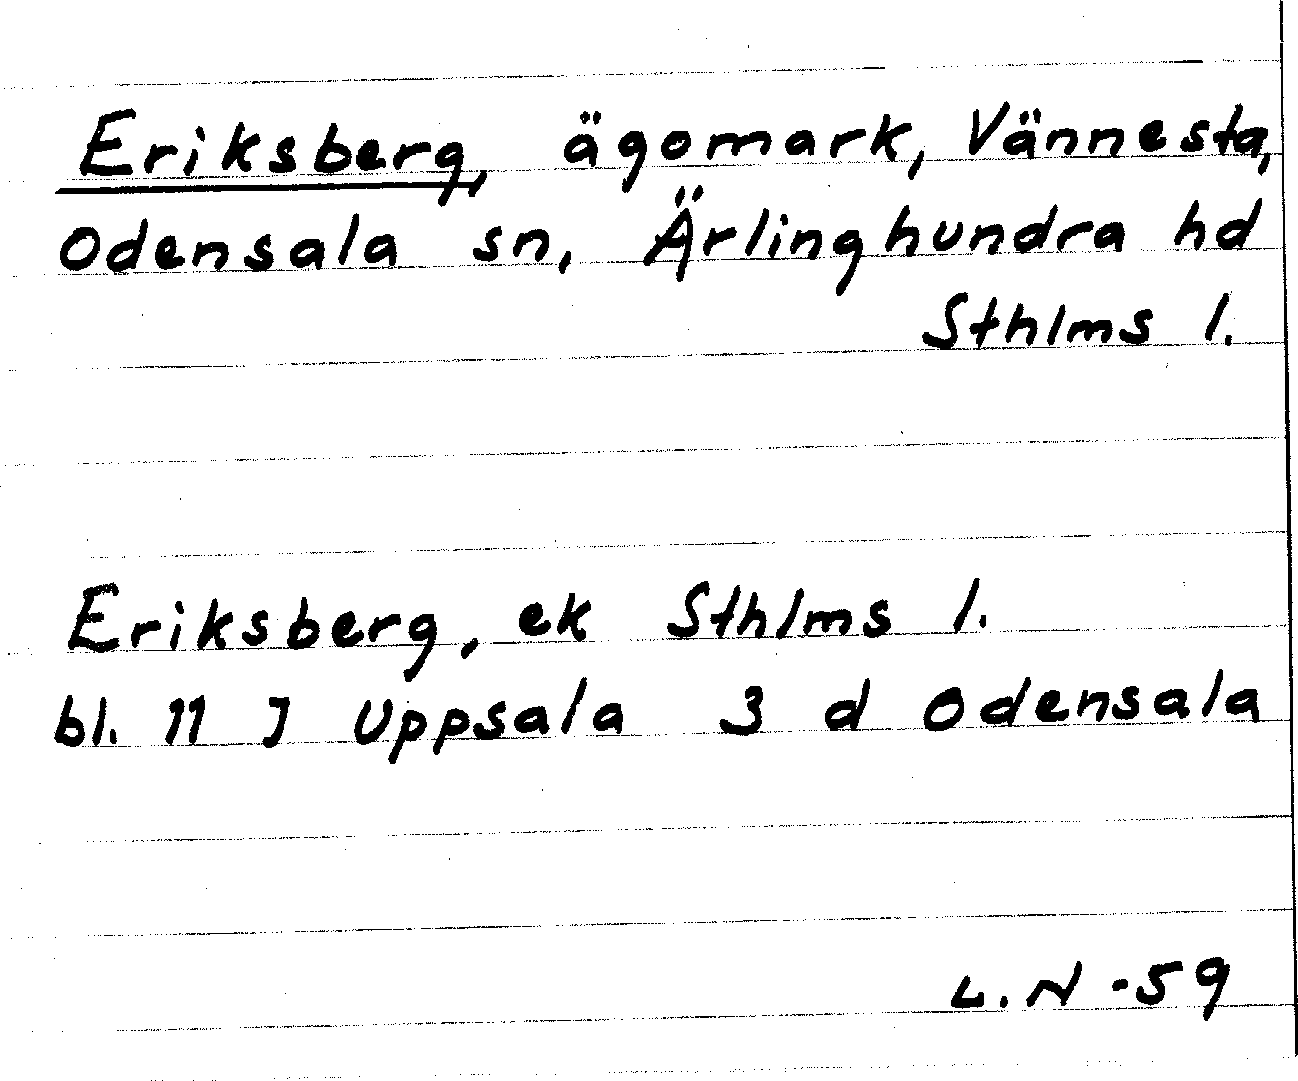 Eriksberg, ägomark, Vännesta,
Odensala sn, Ärlinghundra hd
Sthlms l.
Eriksberg, ek Sthlms l.
bl. 11 J Uppsala 3 d Odensala
L.N -59